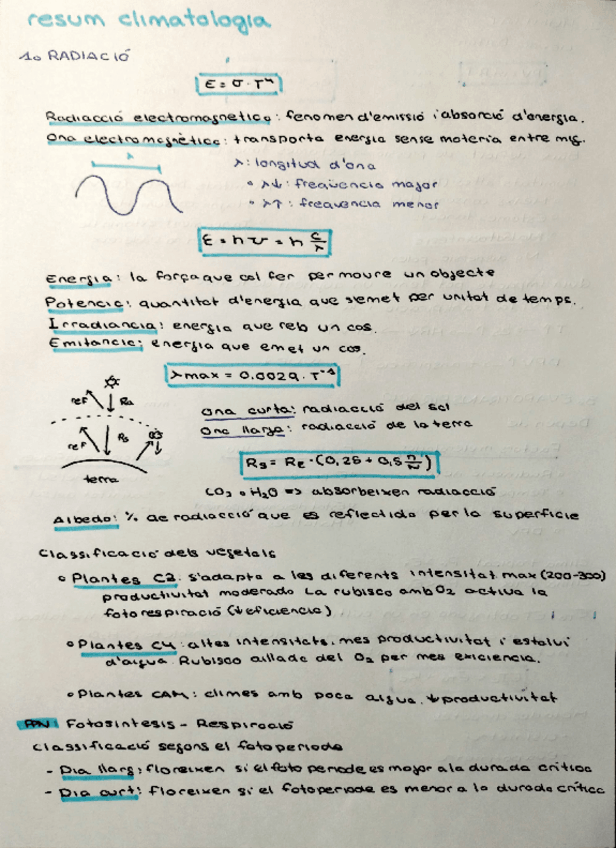 resum climatologia
1. RADIACIÓ
E = σ · T⁴
Radiacció electromagnetica: fenomen d'emissió i absorció d'energia.
Ona electromagnètica: transporta energia sense materia entre mig.
λ
λ: longitud d'ona
• λ↓: freqüencia major
• λ↑: frequencia menor
E = h ν = h c/λ
Energia: la força que cal fer per moure un objecte
Potencia: quantitat d'energia que s'emet per unitat de temps.
Irradiancia: energia que reb un cos.
Emitancia: energia que emet un cos.
λmax = 0.0029 · T⁻¹
ref Ra
ref Rs
terra
ona curta: radiacció del sol
Ona llarga: radiacció de la terra
Rs = RE · (0,25 + 0,5 n/N)
CO₂ • H₂O => absorbeixen radiacció
Albedo: % de radiacció que es reflectida per la superficie
Classificació dels vegetals
• Plantes C3. s'adapta a les diferents intensitat max (200-300)
productivitat moderada La rubisco amb O₂ activa la
fotorespiració (↓eficiencia)
• Plantes C4: altes intensitats, mes productivitat i estalvi
d'aigua. Rubisco aillada del O₂ per mes eficiencia.
• Plantes CAM: climes amb poca aigua, ↓productivitat
PPN: Fotosintesis - Respiració
Classificació segons el fotoperiode
- Dia llarg: floreixen si el fotoperiode es major a la durada critica
- Dia curt: floreixen si el fotoperiode es menor a la durada critica